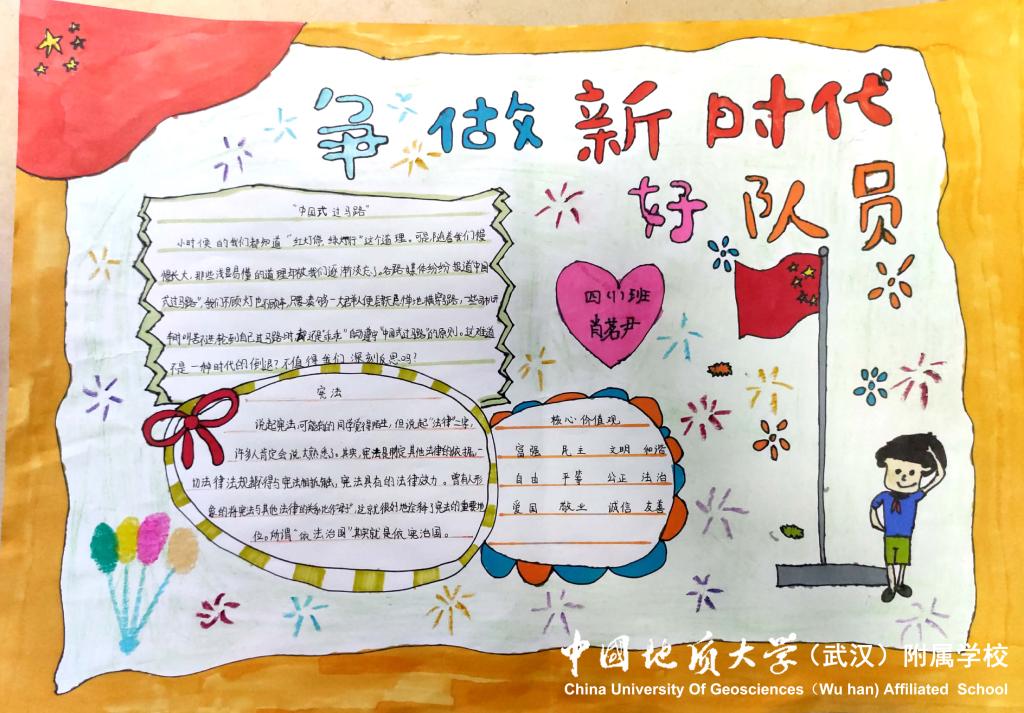 争做新时代
好队员
"中国式过马路"
小时侯的我们都知道"红灯停,绿灯行"这个道理。可是随着我们慢
慢长大,那些浅显易懂的道理却被我们逐渐淡忘了。各路媒体纷纷报道"中国
式过马路",我们不顾灯也不顾车,只要凑够一大群人便
不是一种时代的倒退?不值得我们深刻反思吗?
四(1)班
肖茗尹
宪法
说起宪法,可能有的同学觉得陌生,但说起"法律"二字,
许多人肯定会说太熟悉了。其实,宪法是制定其他法律的依据,一
切法律法规都不得与宪法相抵触,宪法具有的法律效力。曾有人形
象的将宪法与其他法律的关系比作
位。所谓"依法治国"其实就是依宪治国。
核心价值观
富强 民主 文明 和谐
自由 平等 公正 法治
爱国 敬业 诚信 友善
中国地质大学(武汉)附属学校
China University Of Geosciences(Wu han) Affiliated School